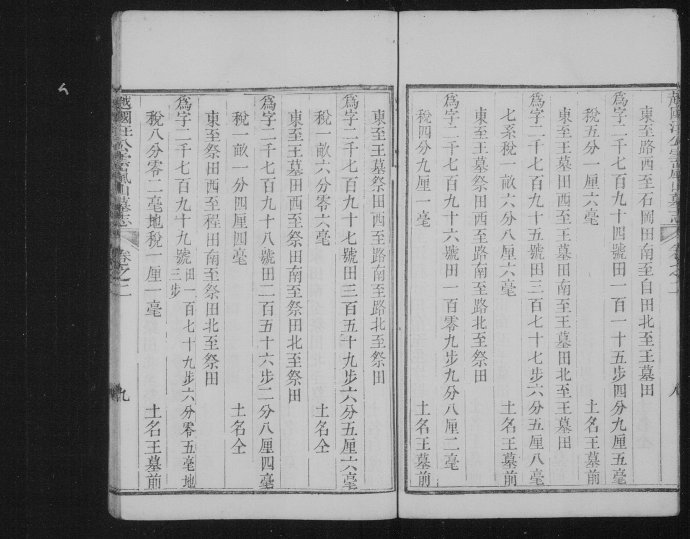 越國汪公雲嵐山墓志 卷之二 八
東至路西至石㘭田南至自田北至王墓田
爲字二千七百九十四號田一百一十五步四分九厘五毫
稅五分一厘六毫 土名王墓前
東至王墓田西至王墓田南至王墓田北至王墓田
爲字二千七百九十五號田三百七十七步六分五厘八毫
七系稅一畝六分八厘六毫 土名王墓前
東至王墓祭田西至路南至路北至祭田
爲字二千七百九十六號田一百零九步九分八厘二毫
稅四分九厘一毫 土名王墓前
東至王墓祭田西至路南至路北至祭田
爲字二千七百九十七號田三百五十九步六分五厘六毫
稅一畝六分零六毫 土名仝
東至王墓田西至祭田南至祭田北至祭田
爲字二千七百九十八號田二百五十六步二分八厘四毫
稅一畝一分四厘四毫 土名仝
東至祭田西至程田南至祭田北至祭田
爲字二千七百九十九號田一百七十九步六分零五毫地三步
稅八分零二毫地稅一厘一毫 土名王墓前
越國汪公雲嵐山墓志 卷之二 九